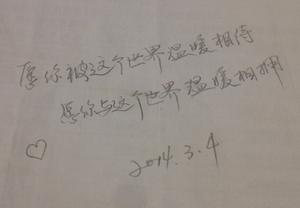 愿你被这个世界温暖相待
愿你与这个世界温暖相拥
2014.3.4